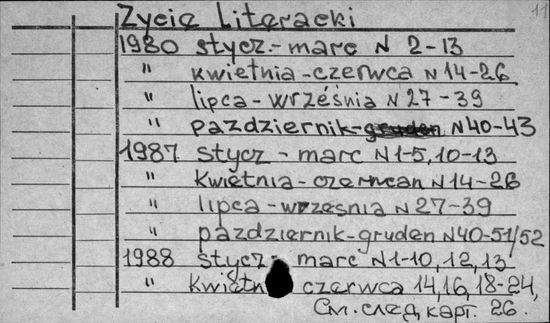 11
Zycie Literacki
1980 stycz.-marc N 2-13
" kwietnia-czerwca N 14-26
" lipca-września N 27-39
" pazdziernik- N40-43
1987 stycz - marc N1-5, 10-13
" kwietnia-czerwcan N14-26
" lipca-wrzesnia N 27-39
" pazdziernik-gruden N40-51/52
1988 stycz- marc N1-10, 12, 13
" kwietn czerwca 14, 16, 18-24,
См. след. карт. 26.